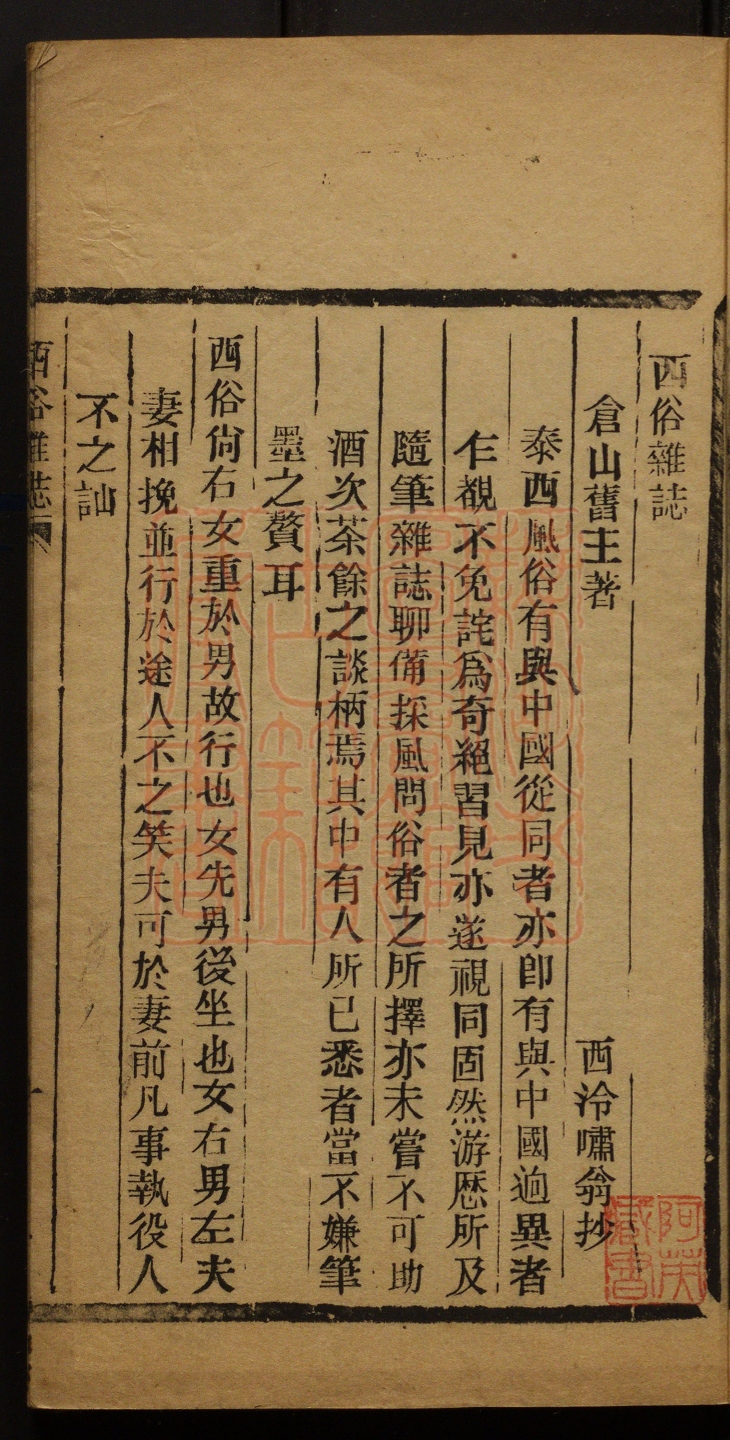 西俗雜誌
倉山舊主著 西泠嘯翁抄
泰西風俗有與中國從同者亦卽有與中國逈異者
乍覩不免詫爲奇絕習見亦遂視同固然游歴所及
隨筆雜誌聊備採風問俗者之所擇亦未嘗不可助
酒次茶餘之談柄焉其中有人所已悉者當不嫌筆
墨之贅耳
西俗尙右女重於男故行也女先男後坐也女右男左夫
妻相挽並行於途人不之笑夫可於妻前凡事執役人
不之訕
西俗雜誌
阿英藏書